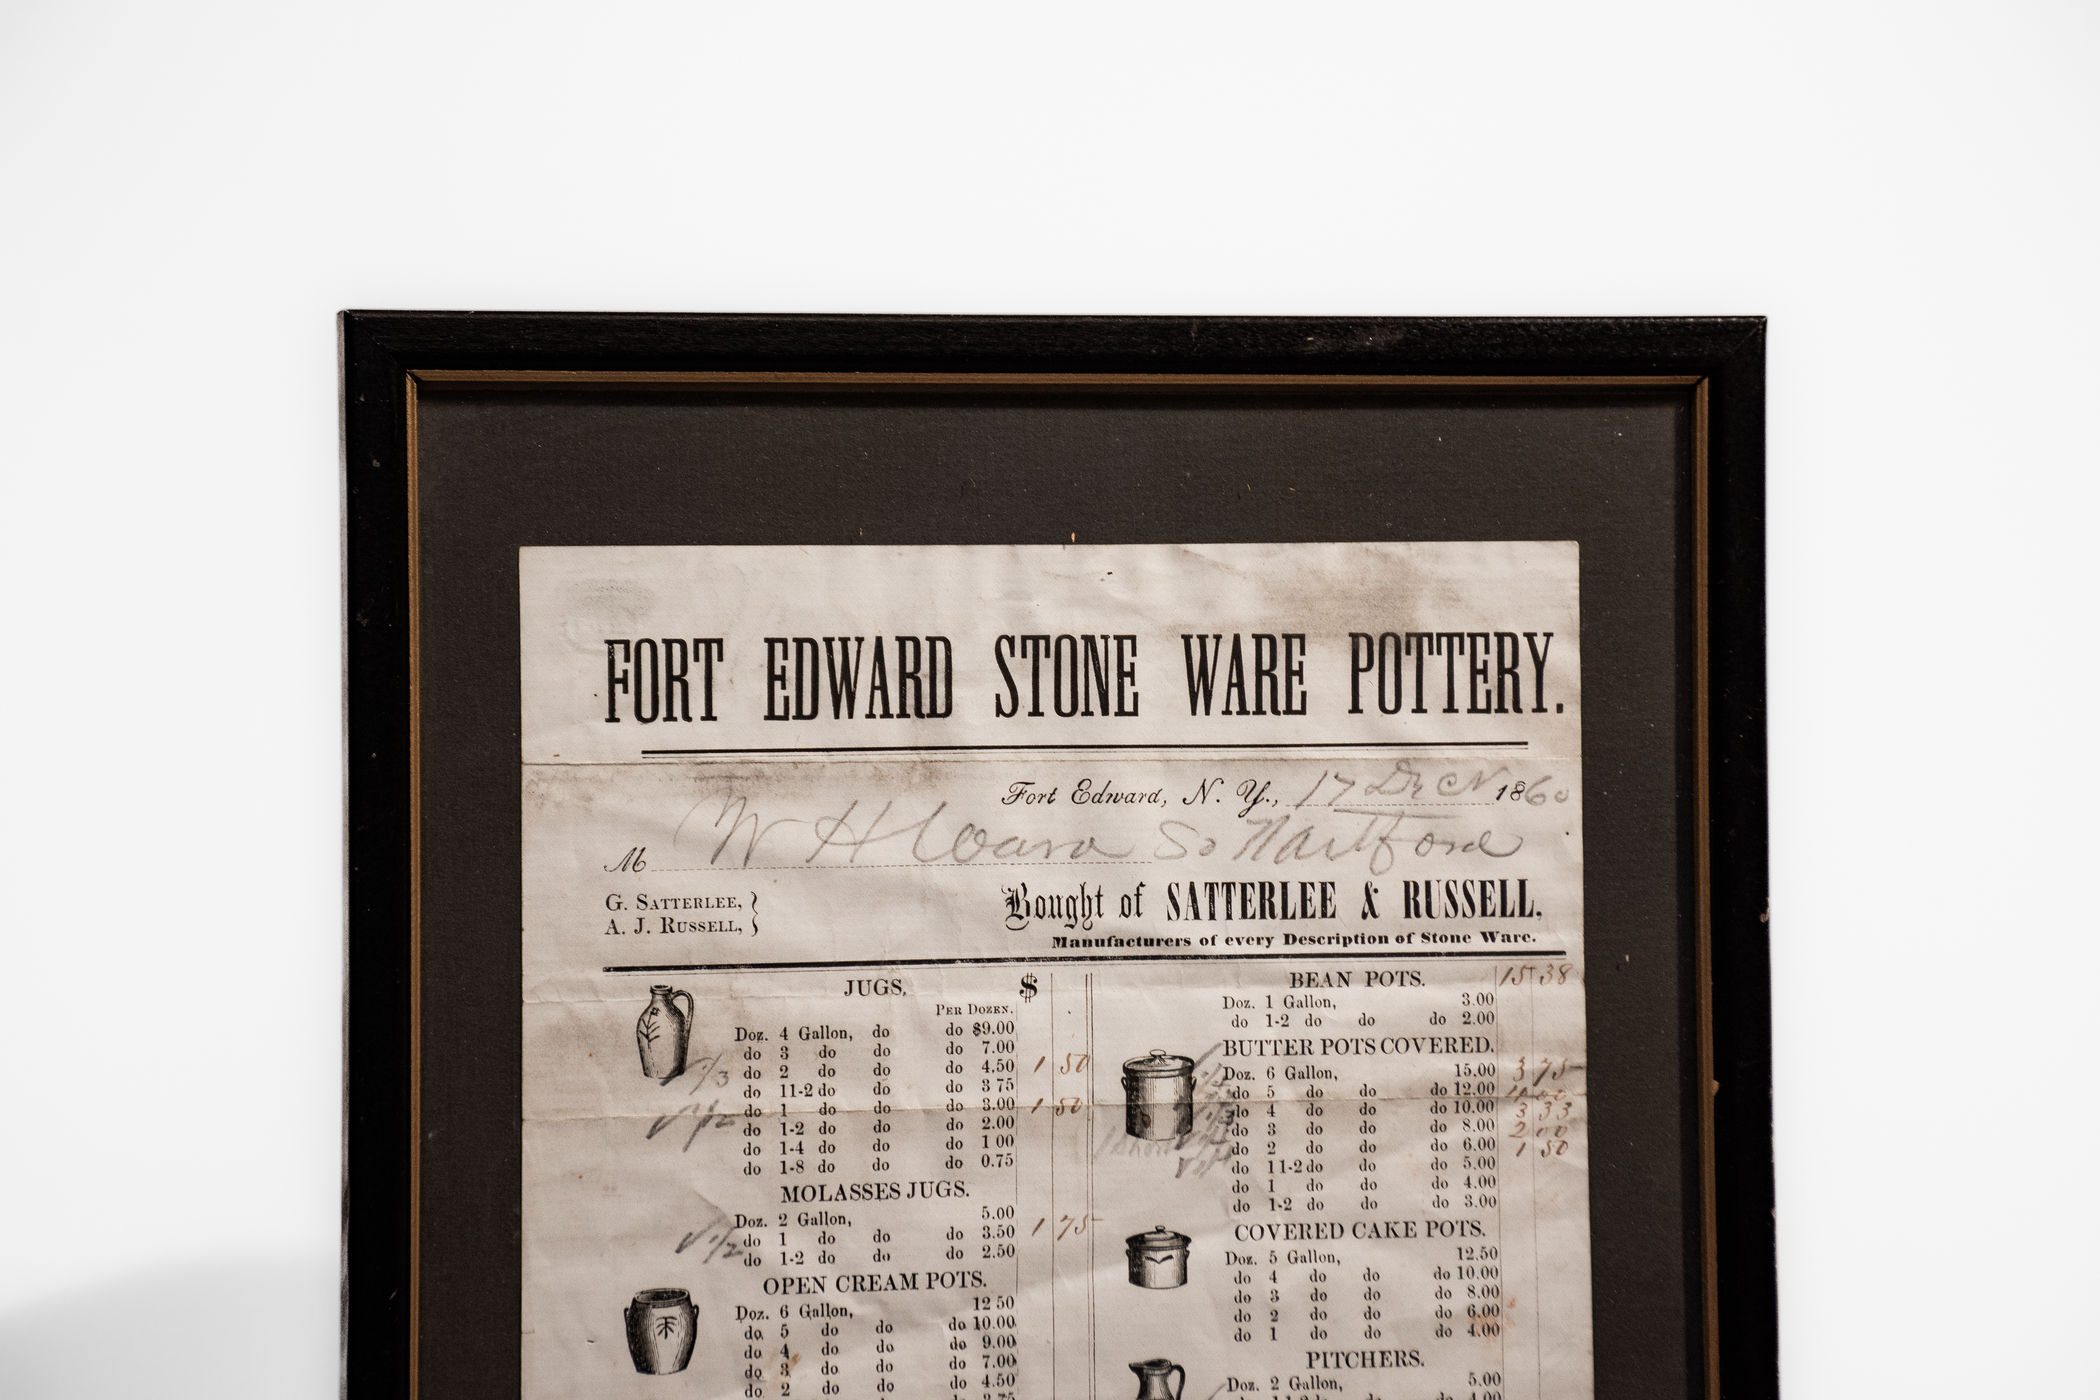 FORT EDWARD STONE WARE POTTERY.
Fort Edward, N. Y., 17 Dec 1860
M W H So Hartford
G. SATTERLEE,
A. J. RUSSELL,
Bought of SATTERLEE & RUSSELL,
Manufacturers of every Description of Stone Ware.
JUGS. $
PER DOZEN.
Doz. 4 Gallon, do do $9.00
do 3 do do do 7.00
1/3 do 2 do do do 4.50 1 50
do 11-2 do do do 3 75
1/2 do 1 do do do 3.00 1 50
do 1-2 do do do 2.00
do 1-4 do do do 1 00
do 1-8 do do do 0.75
MOLASSES JUGS.
Doz. 2 Gallon, 5.00
1/2 do 1 do do do 3.50 1 75
do 1-2 do do do 2.50
OPEN CREAM POTS.
Doz. 6 Gallon, 12 50
do 5 do do do 10.00
do 4 do do do 9.00
do 3 do do do 7.00
do 2 do do do 4.50
BEAN POTS. 15 38
Doz. 1 Gallon, 3.00
do 1-2 do do do 2.00
BUTTER POTS COVERED.
Doz. 6 Gallon, 15.00 3 75
do 5 do do do 12.00
do 4 do do do 10.00 3 33
do 3 do do do 8.00 2 00
do 2 do do do 6.00 1 50
do 11-2 do do do 5.00
do 1 do do do 4.00
do 1-2 do do do 3.00
COVERED CAKE POTS.
Doz. 5 Gallon, 12.50
do 4 do do do 10.00
do 3 do do do 8.00
do 2 do do do 6.00
do 1 do do do 4.00
PITCHERS.
Doz. 2 Gallon, 5.00